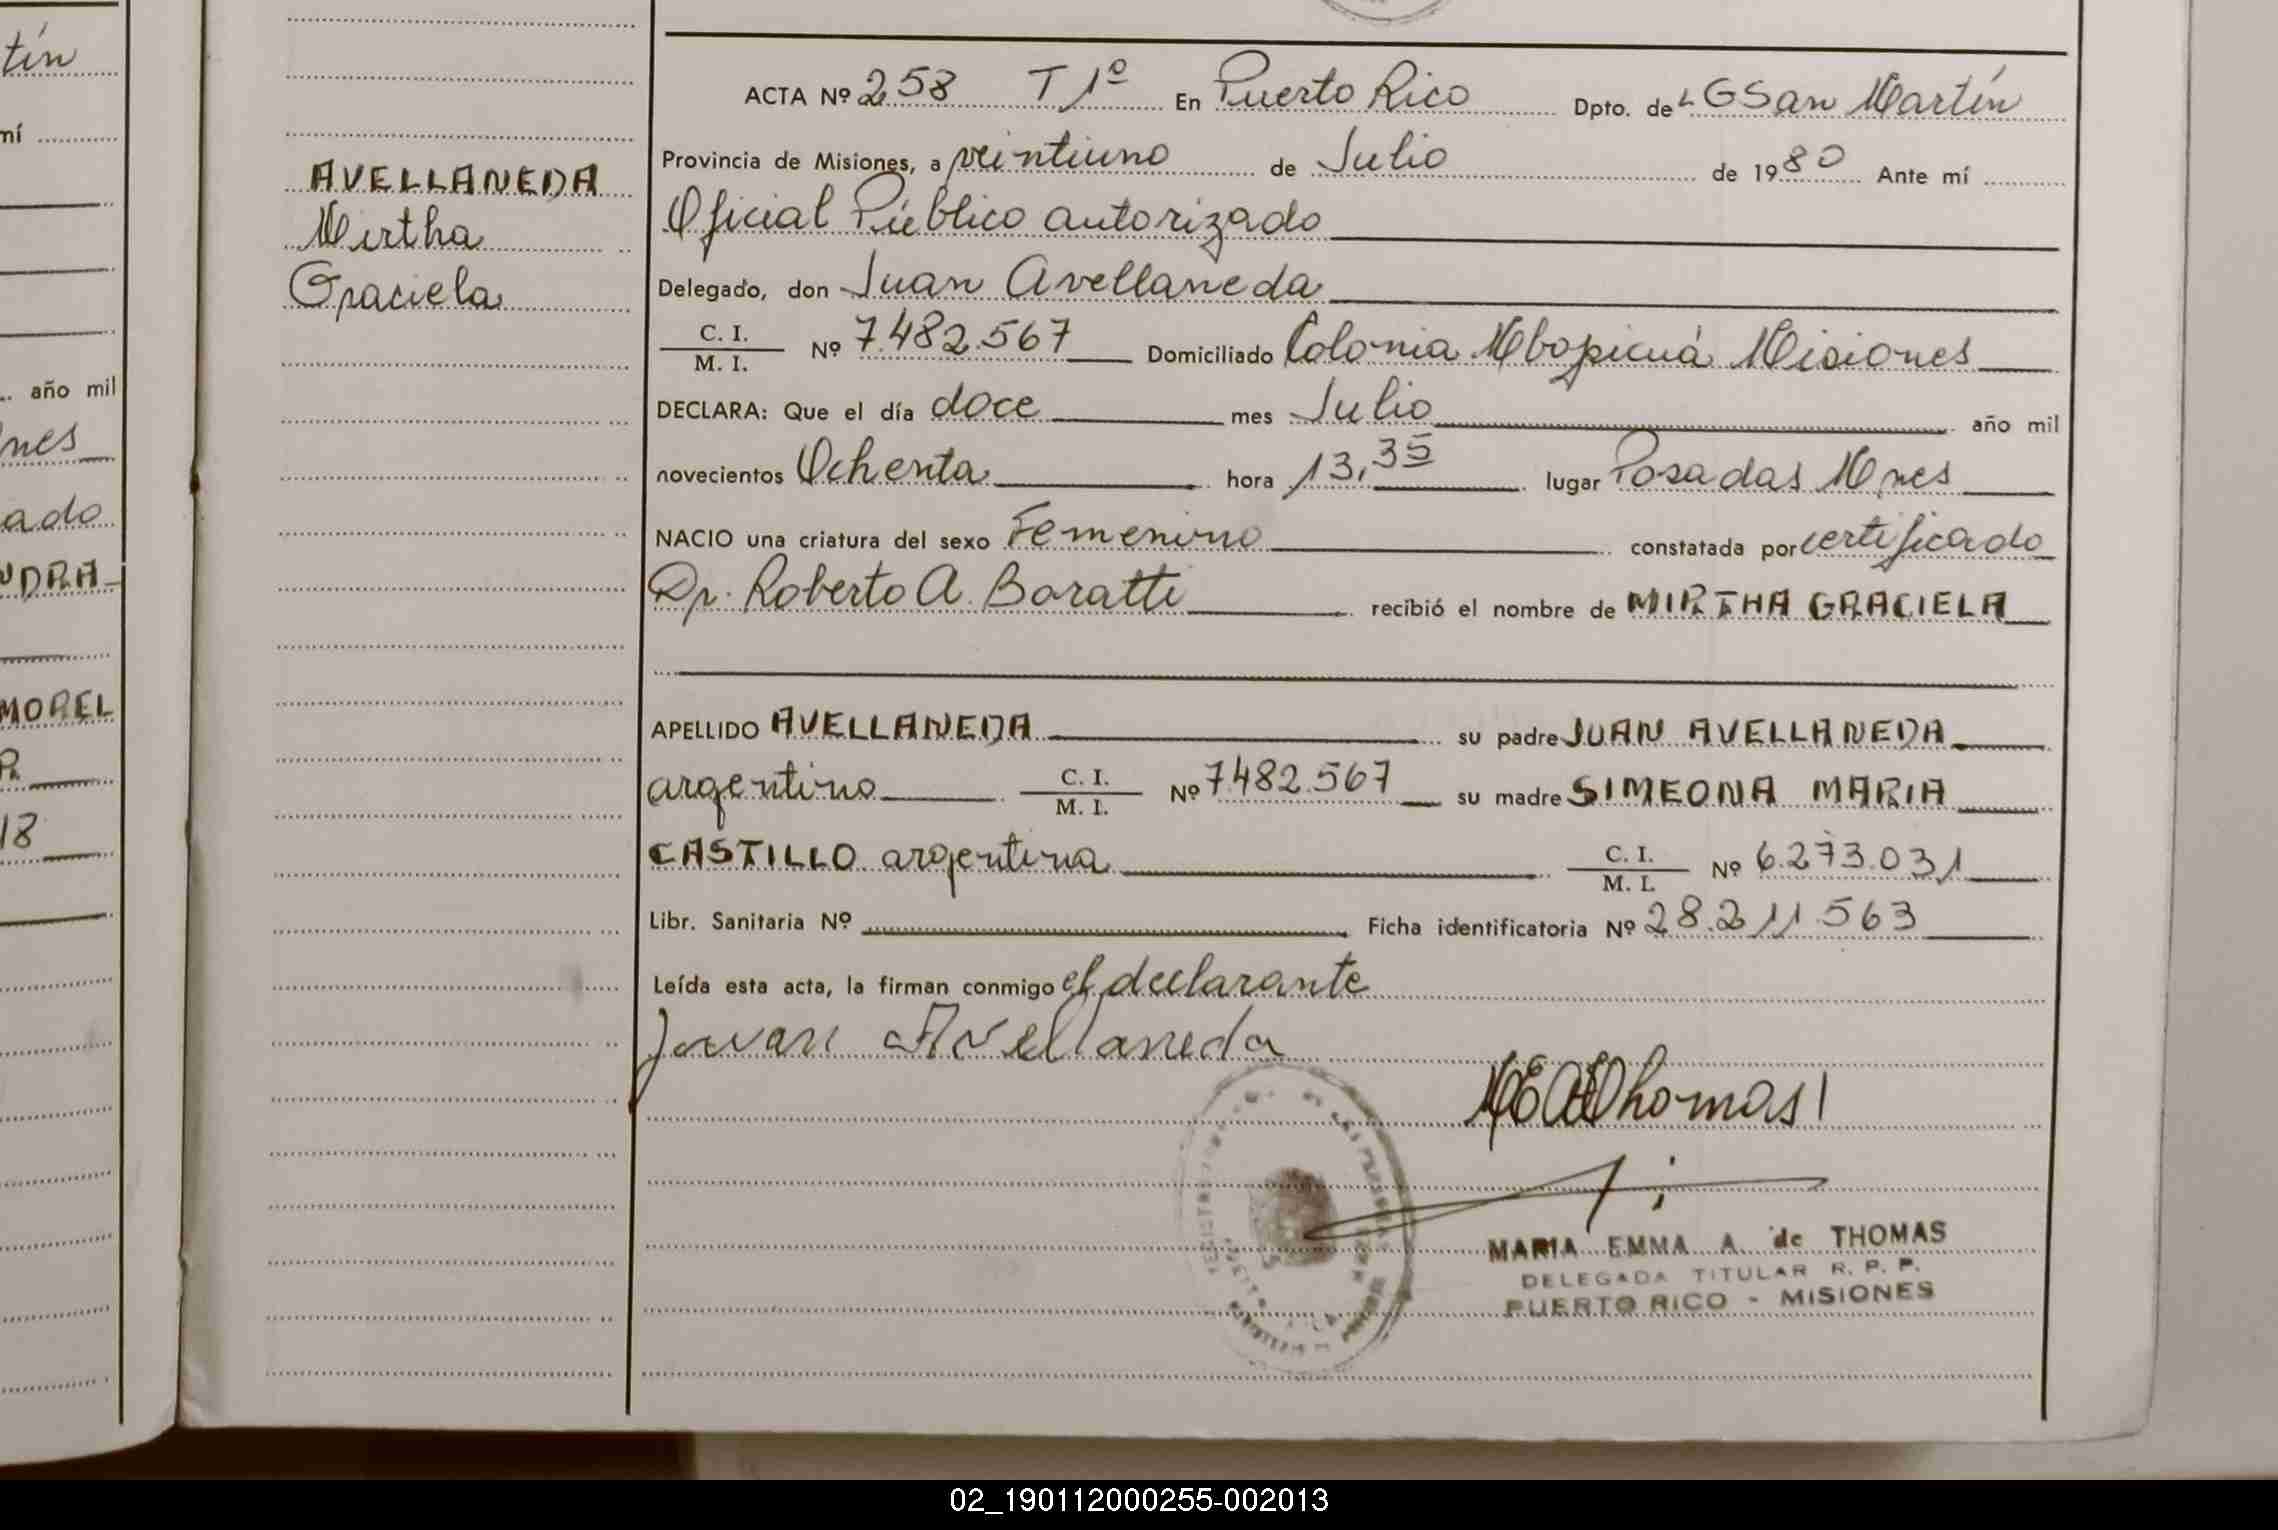 tín
mí
año mil
nes
ado
NDRA
MOREL
18
AVELLANEDA
Mirtha
Graciela
ACTA Nº 258 T 1º En Puerto Rico Dpto. de L G San Martín
Provincia de Misiones, a veintiuno de Julio de 1980 Ante mí
Oficial Público autorizado
Delegado, don Juan Avellaneda
C. I.
M. I. Nº 7.482.567 Domiciliado Colonia Mbopicuá Misiones
DECLARA: Que el día doce mes Julio año mil
novecientos Ochenta hora 13,35 lugar Posadas Mnes
NACIO una criatura del sexo Femenino constatada por certificado
Dr. Roberto A. Boratti recibió el nombre de MIRTHA GRACIELA
APELLIDO AVELLANEDA su padre JUAN AVELLANEDA
argentino C. I. M. I. Nº 7.482.567 su madre SIMEONA MARIA
CASTILLO argentina C. I. M. I. Nº 6.273.031
Libr. Sanitaria Nº Ficha identificatoria Nº 28.211.563
Leída esta acta, la firman conmigo el declarante
Juan Avellaneda
MEAdThomas
MARIA EMMA A. de THOMAS
DELEGADA TITULAR R. P. P.
PUERTO RICO - MISIONES
02_190112000255-002013